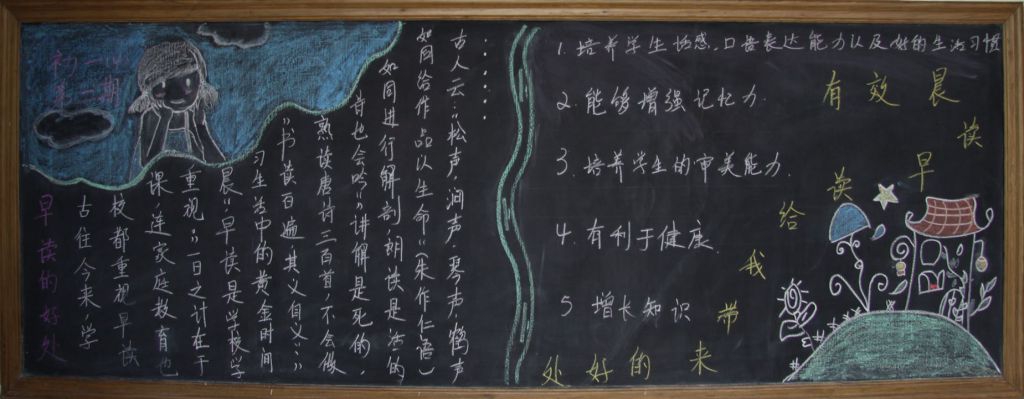 初一
第一期
早读的好处
古住今来，学
校都重视早读
课，连家庭教育也
重视。"一日之计在于
晨"早读是学校学
习生活中的黄金时间
"书读百遍其义自义；"
熟读唐诗三百首，不会做
诗也会吟"讲解是死的，
如同进行解剖，朗读是活的
如同给作品以生命"(朱作仁语)
古人云："松声，涧声，琴声，鹤声
……
1. 培养学生情感、口语表达能力以及好的生活习惯
2. 能够增强记忆力.
3. 培养学生的审美能力.
4. 有利于健康.
5 增长知识
有效晨读早读给我带来的好处